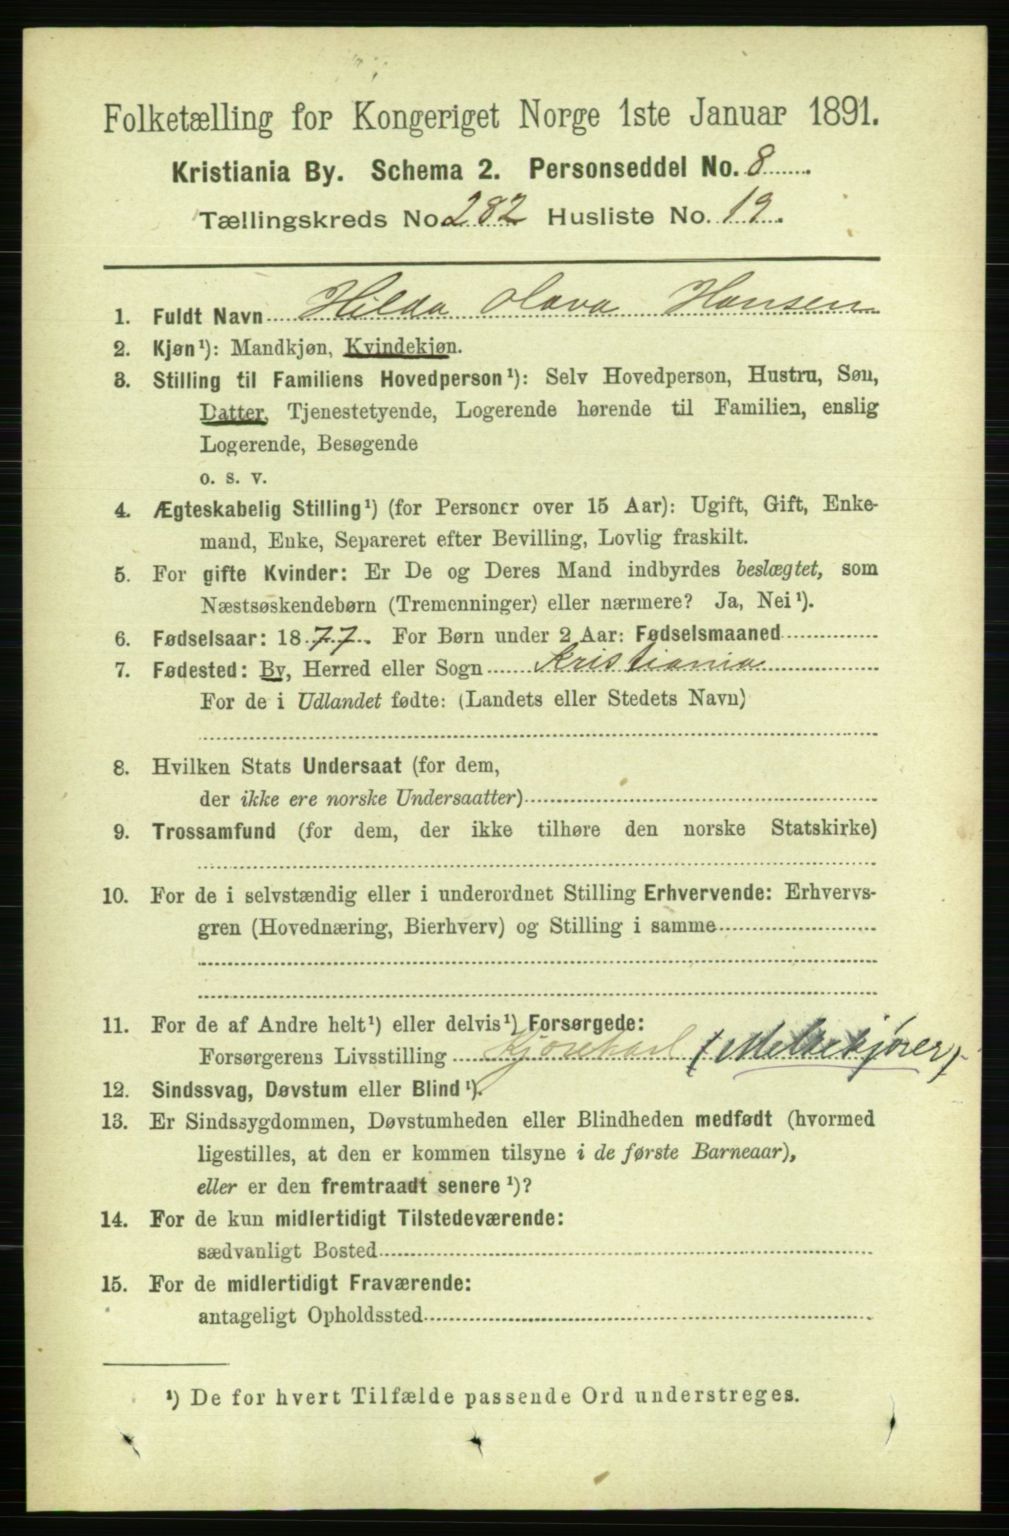 Folketælling for Kongeriget Norge 1ste Januar 1891.
Kristiania By. Schema 2. Personseddel No. 8
Tællingskreds No. 282 Husliste No. 19.
1. Fuldt Navn Hilda Olava Hansen
2. Kjøn¹): Mandkjøn, Kvindekjøn.
3. Stilling til Familiens Hovedperson¹): Selv Hovedperson, Hustru, Søn,
Datter, Tjenestetyende, Logerende hørende til Familien, enslig
Logerende, Besøgende
o. s. v.
4. Ægteskabelig Stilling¹) (for Personer over 15 Aar): Ugift, Gift, Enke-
mand, Enke, Separeret efter Bevilling, Lovlig fraskilt.
5. For gifte Kvinder: Er De og Deres Mand indbyrdes beslægtet, som
Næstsøskendebørn (Tremenninger) eller nærmere? Ja, Nei¹).
6. Fødselsaar: 1877. For Børn under 2 Aar: Fødselsmaaned
7. Fødested: By, Herred eller Sogn Kristiania
For de i Udlandet fødte: (Landets eller Stedets Navn)
8. Hvilken Stats Undersaat (for dem,
der ikke ere norske Undersaatter)
9. Trossamfund (for dem, der ikke tilhøre den norske Statskirke)
10. For de i selvstændig eller i underordnet Stilling Erhvervende: Erhvervs-
gren (Hovednæring, Bierhverv) og Stilling i samme
11. For de af Andre helt¹) eller delvis¹) Forsørgede:
Forsørgerens Livsstilling Kjørekarl (Melkekjører)
12. Sindssvag, Døvstum eller Blind¹).
13. Er Sindssygdommen, Døvstumheden eller Blindheden medfødt (hvormed
ligestilles, at den er kommen tilsyne i de første Barneaar),
eller er den fremtraadt senere¹)?
14. For de kun midlertidigt Tilstedeværende:
sædvanligt Bosted
15. For de midlertidigt Fraværende:
antageligt Opholdssted
¹) De for hvert Tilfælde passende Ord understreges.